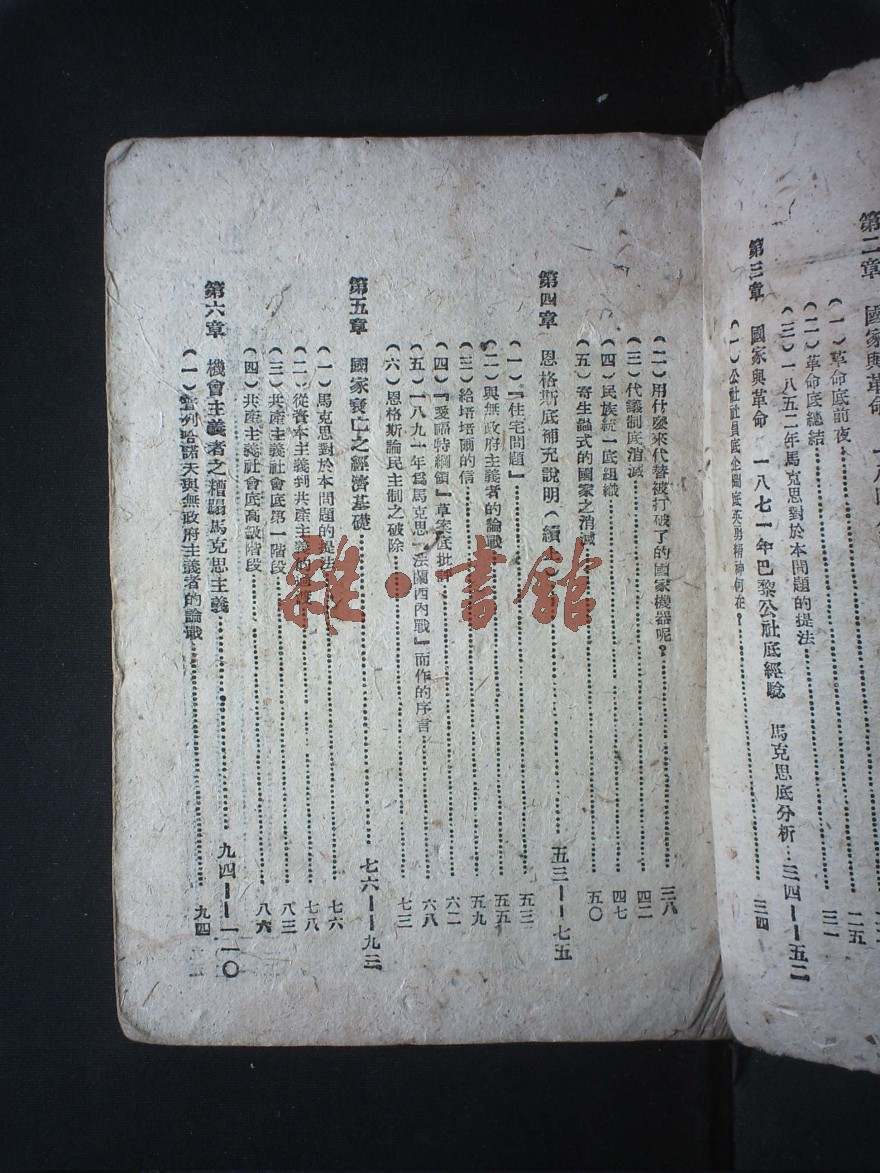 第二章 國家與革命
(一)革命底前夜
(二)革命底總結 二五
(三)一八五二年馬克思對於本問題的提法 三一
第三章 國家與革命 一八七一年巴黎公社底經驗 馬克思底分析 三四——五二
(一)公社社員底企圖底英勇精神何在? 三四
(二)用什麼來代替被打破了的國家機器呢? 三八
(三)代議制底消滅 四二
(四)民族統一底組織 四七
(五)寄生蟲式的國家之消滅 五〇
第四章 恩格斯底補充說明(續 五三——七五
(一)『住宅問題』 五三
(二)與無政府主義者的論戰 五五
(三)給培培爾的信 五九
(四)『愛福特綱領』草案底批 六二
(五)一八九一年爲馬克思『法蘭西內戰』而作的序言 六八
(六)恩格斯論民主制之破除 七三
第五章 國家衰亡之經濟基礎 七六——九三
(一)馬克思對於本問題的提法 七六
(二)從資本主義到共產主義 七八
(三)共產主義社會底第一階段 八三
(四)共產主義社會底高級階段 八六
第六章 機會主義者之糟蹋馬克思主義 九四——一一〇
(一)普列哈諾夫與無政府主義者的論戰 九四
雜·書館